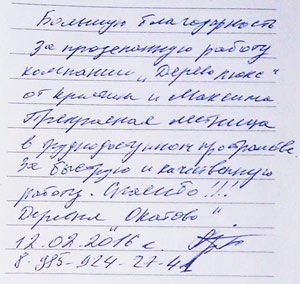 Большую благодарность
за проделанную работу
компании „Дерево люкс"
от Кристины и Максима
Прекрасная лестница
в труднодоступном пространстве.
За быструю и качественную
работу. Спасибо!!!
Деревня „Окатово".
12.02.2016 г.
8-985-924-27-41